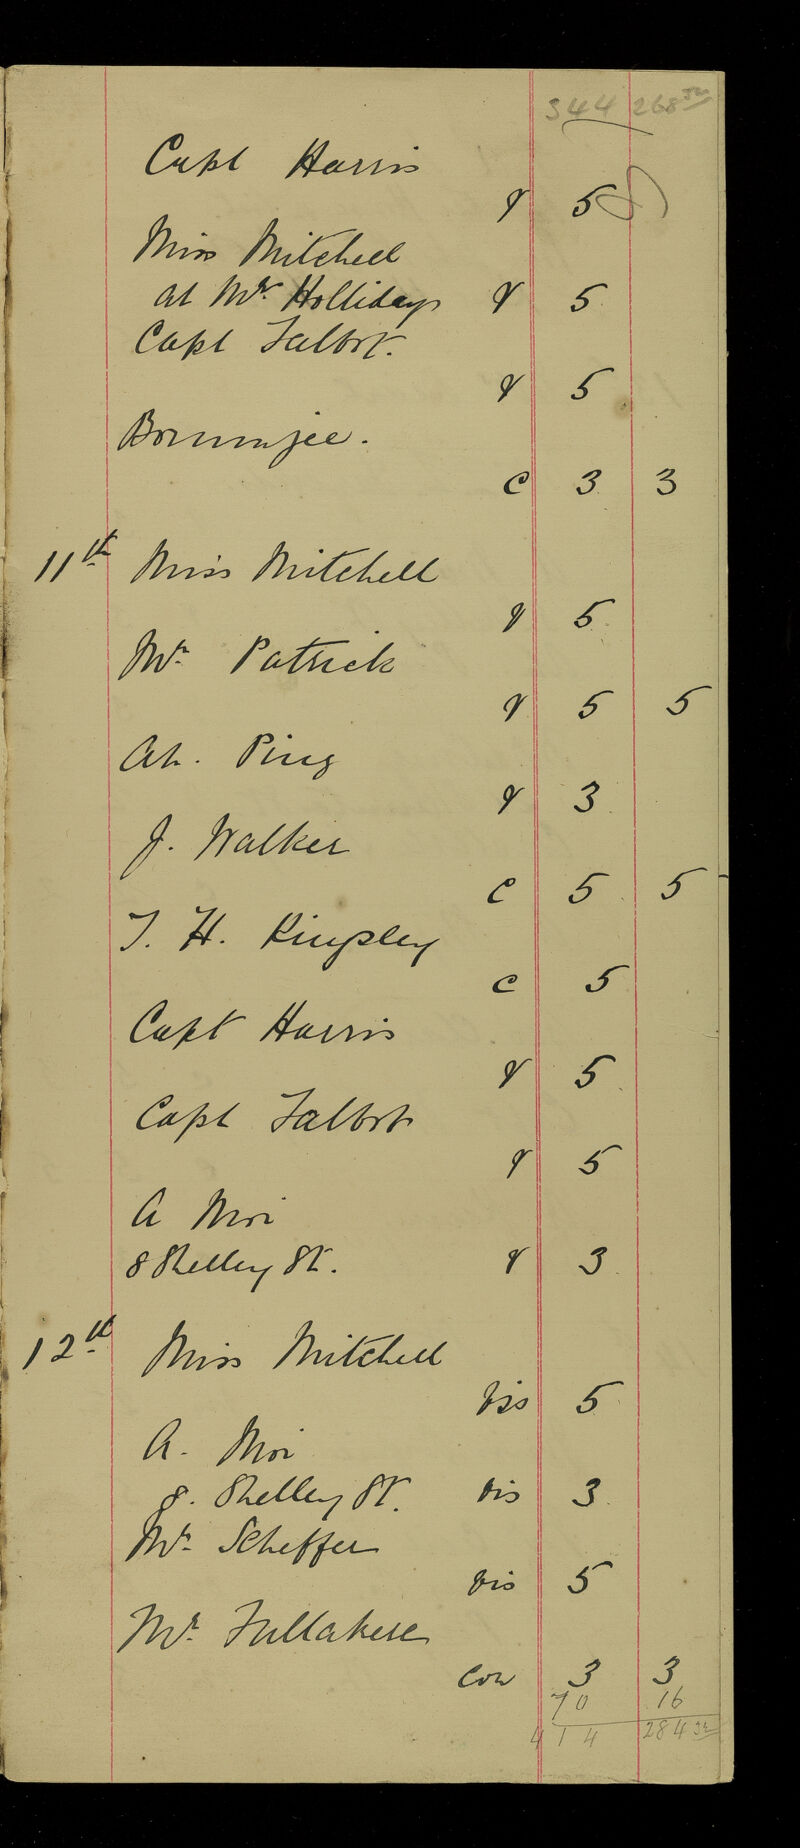 344 268 50
Capt Harris
V 5
Miss Mitchell
at Mr. Hollidays V 5
Capt Talbot.
V 5
C 3 3
11th Miss Mitchell
V 5
Mr. Patrick
V 5 5
Ah. Ping
V 3
J. Walker
C 5 5
T. H. Kingsley
C 5
Capt Harris
V 5
Capt Talbot
V 5
A Moi
8 Shelley St. V 3
12th Miss Mitchell
Vis 5
A. Moi
8. Shelley St. Vis 3
Mr. Scheffer
Vis 5
Mr.
Con 3 3
70 16
414 284